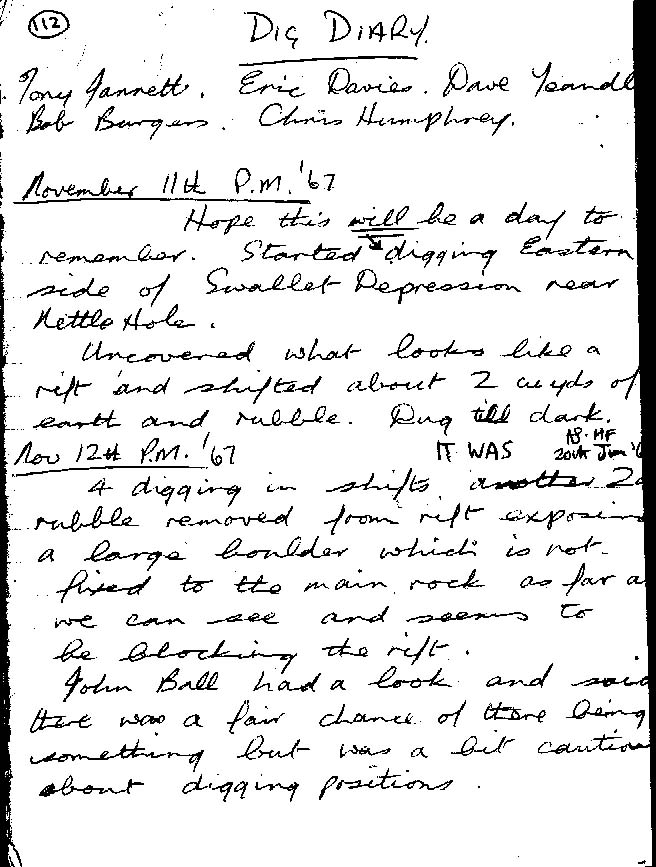 112
DIG DIARY.
Tony Jannett. Eric Davies. Dave Yeandl
Bob Burgess. Chris Humphrey.
November 11th P.M. '67
Hope this will be a day to
remember. Started digging Eastern
side of Swallet Depression near
Nettle Hole.
Uncovered what looks like a
rift and shifted about 2 cu yds of
earth and rubble. Dug till dark.
Nov 12th P.M. '67 IT WAS
20th Jun
4 digging in shifts another 2
rubble removed from rift exposin
a large boulder which is not
fixed to the main rock as far a
we can see and seems to
be blocking the rift.
John Ball had a look and said
there was a fair chance of there being
something but was a bit cautio
about digging positions.